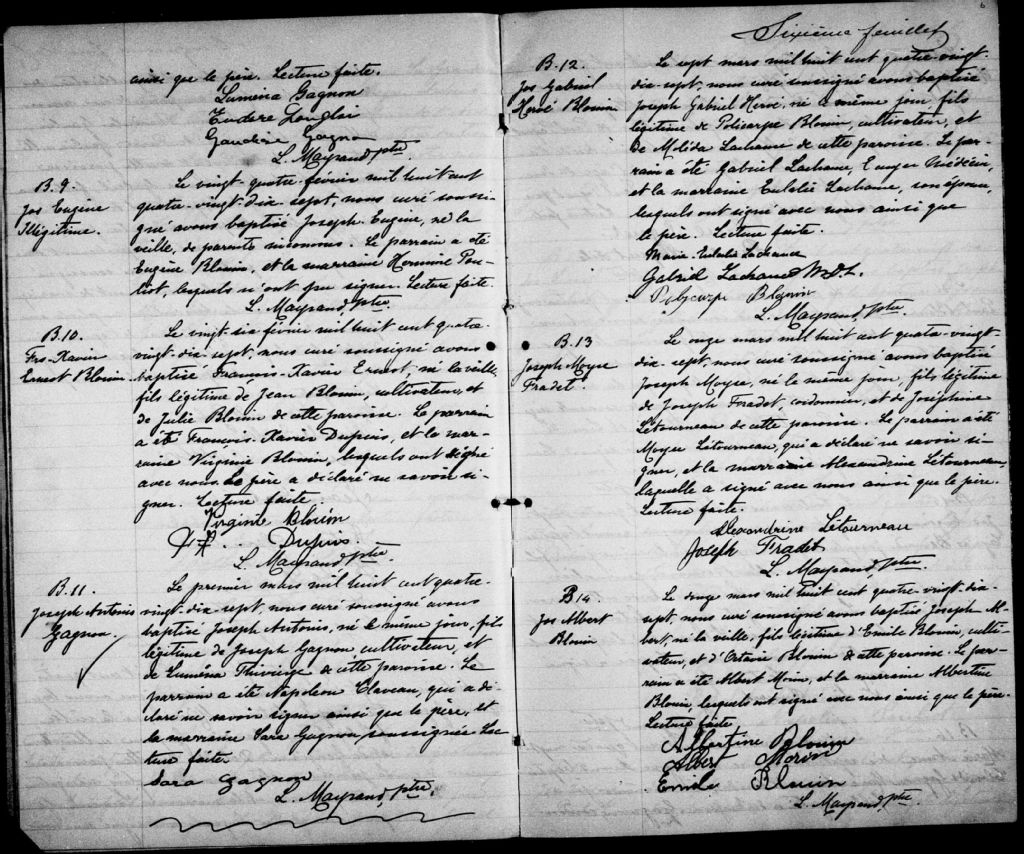 ainsi que le père. Lecture faite.
Luména Gagnon
Eudore Langlais
Gaudiose Gagnon
L. Mayrand, ptre
B. 9.
Jos Eugène
Illégitime.
Le vingt-quatre février mil huit cent
quatre-vingt-dix-sept, nous curé soussi-
gné avons baptisé Joseph-Eugène, né la
veille, de parents inconnus. Le parrain a été
Eugène Blouin, et la marraine Hermine Pou-
liot, lesquels n'ont pu signer. Lecture faite.
L. Mayrand, ptre.
B. 10.
Frs-Xavier
Ernest Blouin
Le vingt-six février mil huit cent quatre-
vingt-dix-sept, nous curé soussigné avons
baptisé Francois-Xavier Ernest, né la veille,
fils légitime de Jean Blouin, cultivateur, et
de Julie Blouin de cette paroisse. Le parrain
a été Francois-Xavier Dupuis, et la mar-
raine Virginie Blouin, lesquels ont signé
avec nous. Le père a déclaré ne savoir si-
gner. Lecture faite.
Virginie Blouin
Dupuis
L. Mayrand, ptre.
B. 11.
Joseph Antonio
Gagnon.
Le premier mars mil huit cent quatre-
vingt-dix-sept, nous curé soussigné avons
baptisé Joseph Antonio, né le même jour, fils
légitime de Joseph Gagnon cultivateur, et
de Luména Thivierge de cette paroisse. Le
parrain a été Napoléon Claveau, qui a dé-
claré ne savoir signer ainsi que le père, et
la marraine Sara Gagnon, soussignée. Lec-
ture faite.
Sara Gagnon
L. Mayrand, ptre.
6
Sixième feuillet
B. 12.
Jos Gabriel
Hervé Blouin
Le sept mars mil huit cent quatre-vingt-
dix-sept, nous curé soussigné avons baptisé
Joseph Gabriel Hervé, né le même jour, fils
légitime de Policarpe Blouin, cultivateur, et
de Mélida Lachance de cette paroisse. Le par-
rain a été Gabriel Lachance, Ecuyer Médecin,
et la marraine Eulalie Lachance, son épouse,
lesquels ont signé avec nous ainsi que
le père. Lecture faite.
Marie-Eulalie Lachance
Gabriel Lachance M.D.L.
Polycarpe Blouin
L. Mayrand, ptre.
B. 13
Joseph Moyse
Fradet.
Le onze mars mil huit cent quatre-vingt-
dix-sept, nous curé soussigné avons baptisé
Joseph Moyse, né le même jour, fils légitime
de Joseph Fradet, cordonnier, et de Joséphine
Létourneau de cette paroisse. Le parrain a été
Moyse Létourneau, qui a déclaré ne savoir si-
gner, et la marraine Alexandrine Létourneau,
laquelle a signé avec nous ainsi que le père.
Lecture faite.
Alexandrine Létourneau
Joseph Fradet
L. Mayrand, ptre
B 14.
Jos Albert
Blouin
Le douze mars mil huit cent quatre-vingt-dix-
sept, nous curé soussigné avons baptisé Joseph Al-
bert, né la veille, fils légitime d'Emile Blouin, culti-
vateur, et d'Octavie Blouin de cette paroisse. Le par-
rain a été Albert Morin, et la marraine Albertine
Blouin, lesquels ont signé avec nous ainsi que le père.
Lecture faite
Albertine Blouin
Albert Morin
Emile Blouin
L. Mayrand, ptre